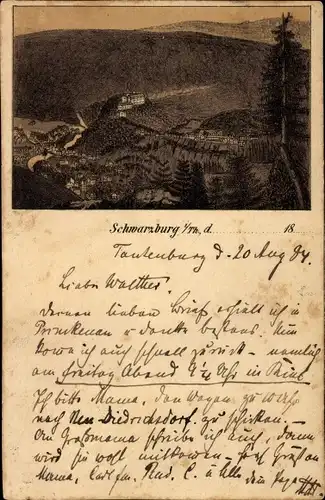 Schwarzburg i/Th, d. 18
Tautenburg d. 20 Aug 84.
Lieber Walther!
Deinen lieben Brief erhielt ich in
Primkenau u danke bestens. Nun
komme ich auch schnell zurück – nämlich
am Freitag Abend
Ich bitte Mama, den Wagen zu
nach Neu-Diedrichsdorf zu schicken. –
An Großmama schreibe ich auch, dann
wird sie wohl mitkommen.
Mama, Carl